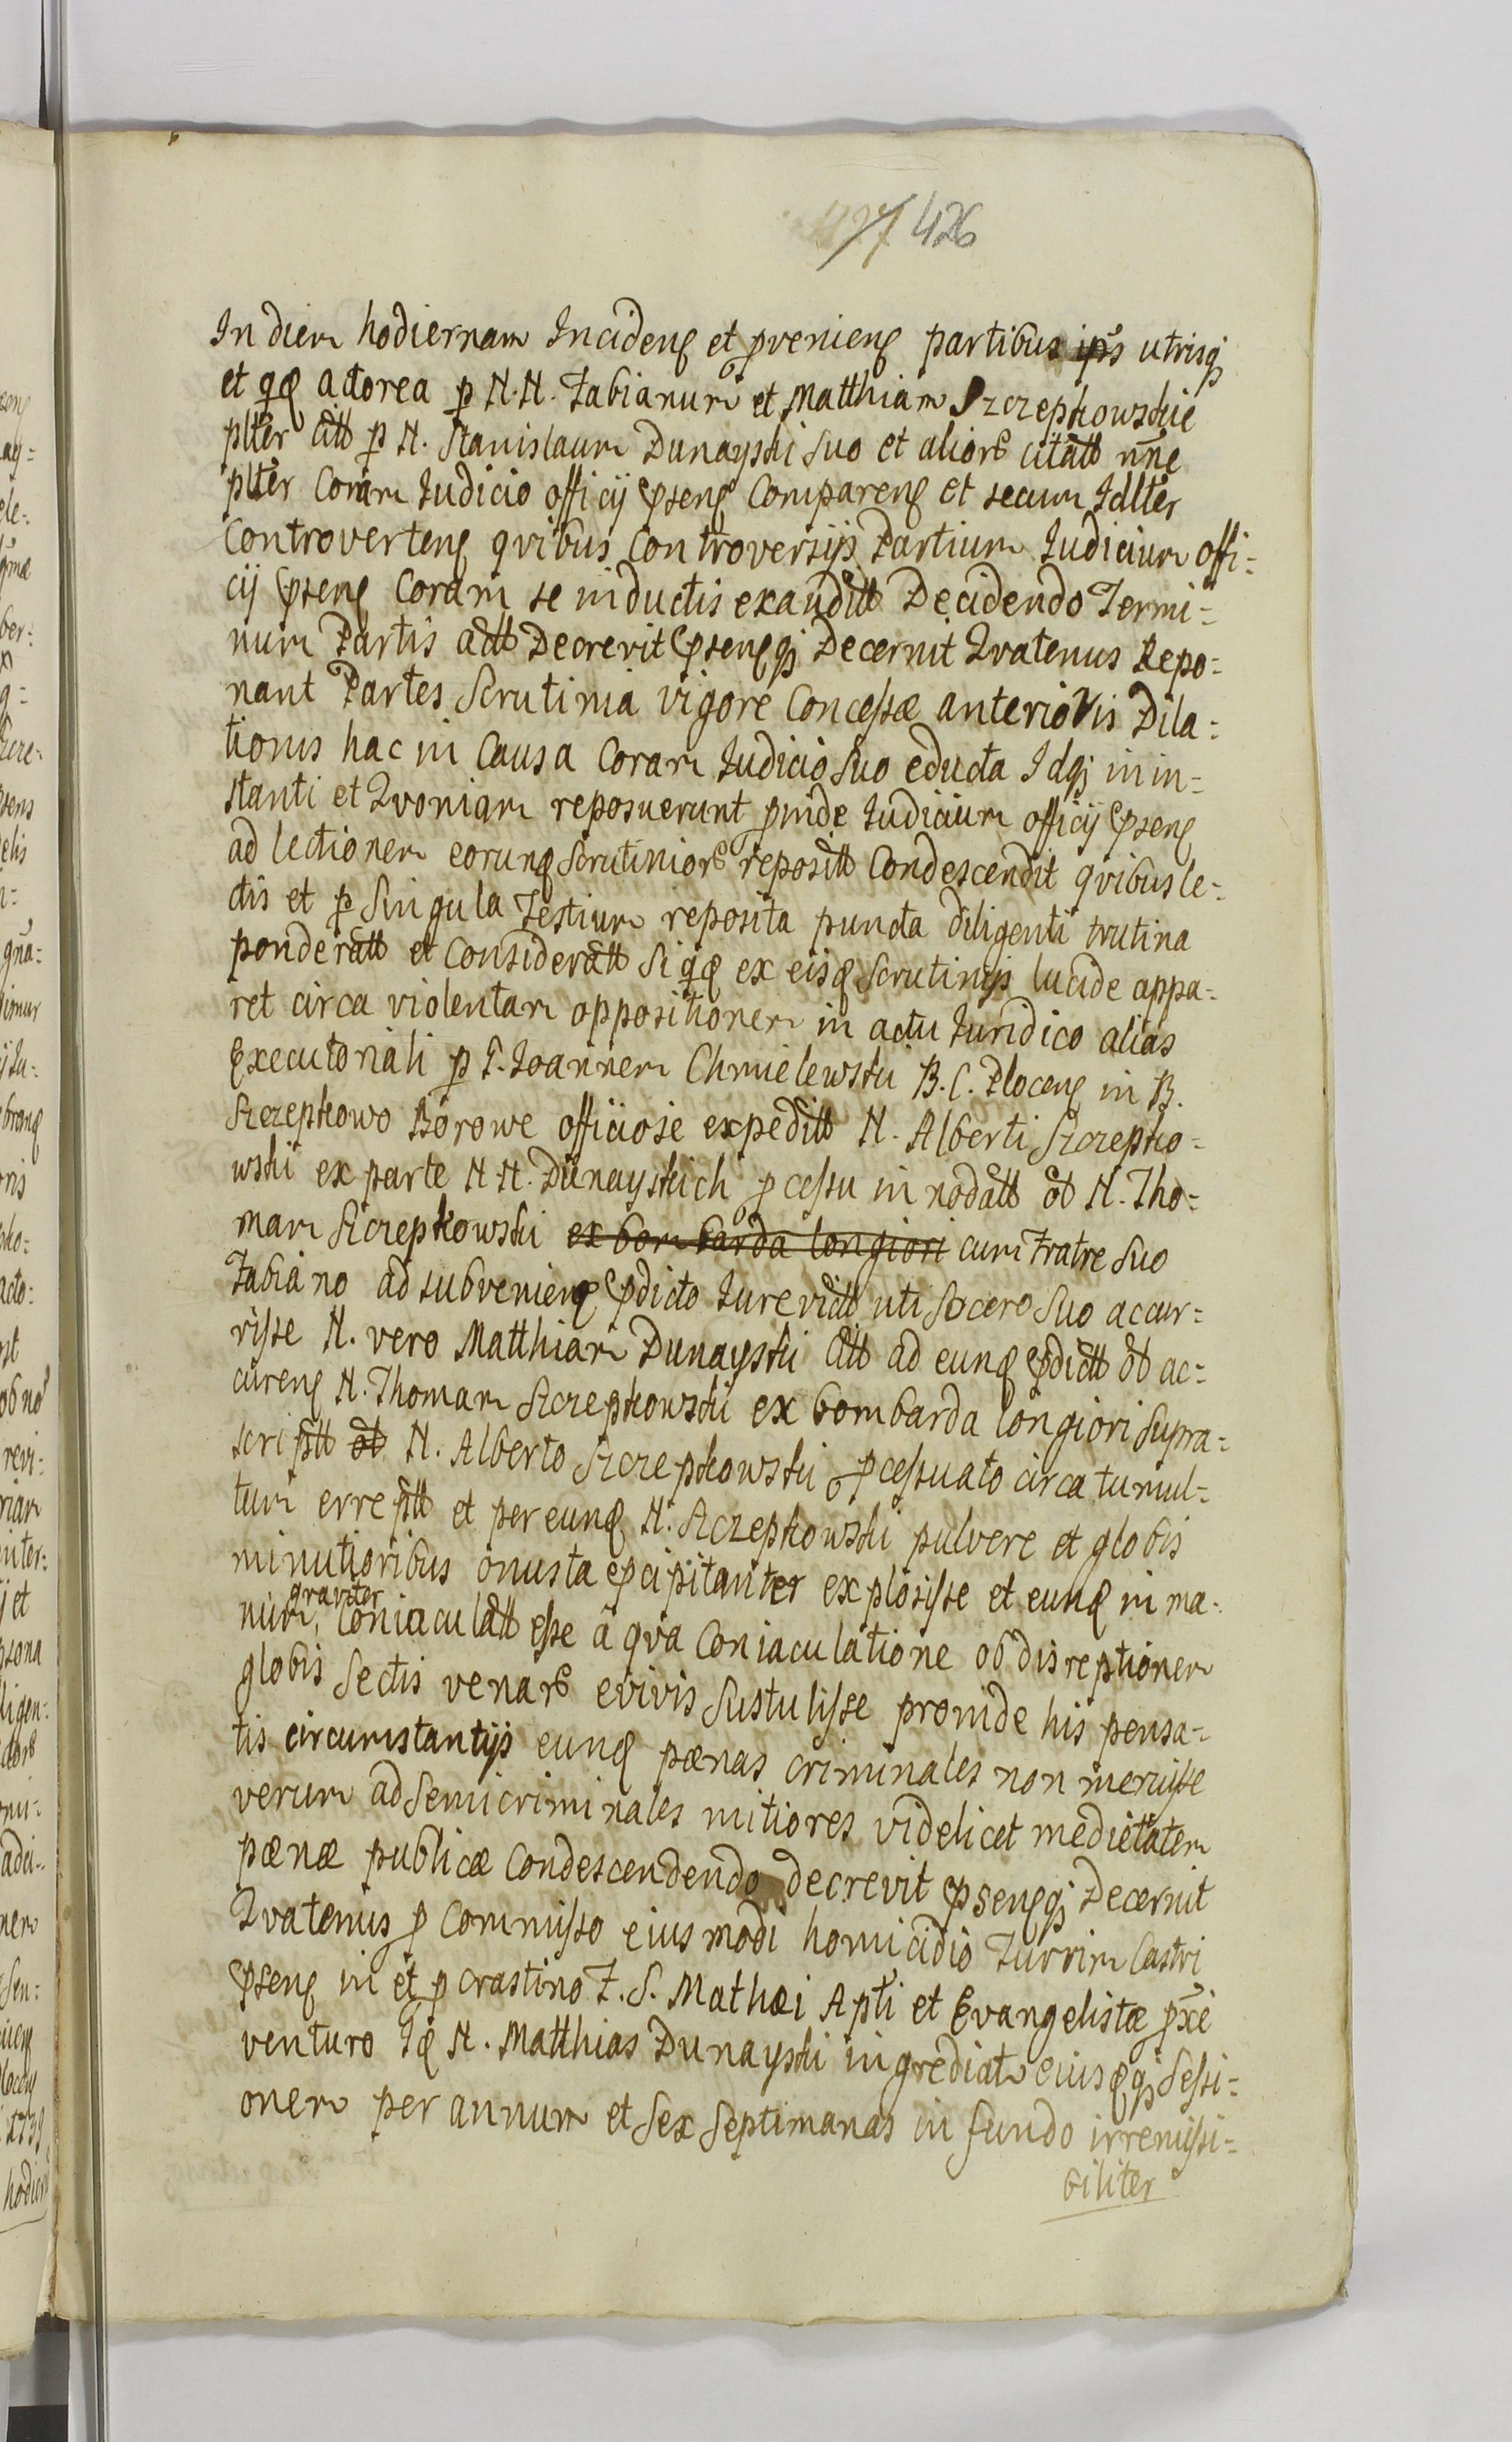 427 426
In diem hodiernam Incidenꝭ et ꝓvenienꝭ partibus ips utrisqꝫ
et qꝫ actorea ꝑ N.N. Fabianum et Matthiam Szczepkowskie
plter Citt ꝑ N. Stanislaum Dunayski suo et aliorꝭ citatt nne
plter Coram Iudicio officij ꝑsenꝭ Comparenꝭ et secum Idlter
Controvertenꝭ qvibus Controversijs Partium Iudicium offi=
cij ꝑsenꝭ Coram se inductis exauditt Decidendo Termi=
num Partis actt Decrevit ꝑsenꝭqꝫ Decernit Qvatenus Repo=
nant Partes Scrutinia vigore Concessæ anterioris Dila=
tionis hac in Causa Coram Iudicio suo educta Idqꝫ in in=
stanti et Qvoniam reposuerunt ꝓinde Iudicium officij ꝑsenꝭ
ad lectionem eorunꝭ Scrutiniorꝭ repositt Condescendit qvibus le=
ctis et ꝑ Singula Testium reposita puncta diligenti trutina
ponderatt et Consideratt Si qꝫ ex eisꝭ Scrutinijs lucide appa=
ret circa violentam oppositionem in actu Iuridico alias
Executoriali ꝑ F. Ioannem Chmielewski B.C. Plocenꝭ in B.
Szczepkowo Borowe officiose expeditt N. Alberti Szczepko=
wski ex parte N.N. Dunayskich ꝓcessu in nodatt Ob N. Tho=
mam Szczepkowski ex bombarda longiori cum Fratre suo
Fabiano ad subvenienꝭ ꝑdicto Iurevictt uti Socero suo accur=
risse N. vero Matthiam Dunayski Citt ad eunꝭ ꝑdictt Ob ac=
curenꝭ N. Thomam Szczepkowski ex bombarda longiori supra=
scriptt ob N. Alberto Szczepkowski ꝓcessuato circa tumul=
tum erreptt et per eunꝭ N. Szczepkowski pulvere et globis
minutioribus onusta ꝑcipitanter explosisse et eunꝭ in ma=
num, graviter Coniaculatt esse à qva Coniaculatione ob disreptionem
globis Sectis venarꝭ evivis Sustulisse proinde his pensa=
tis circumstantijs eunꝭ pænas criminales non meruisse
verum ad Semicriminales mitiores videlicet medietatem
pænæ publicæ Condescendendo decrevit ꝑsenꝭqꝫ Decernit
Qvatenus ꝓ Commisso eiusmodi homicidio Turrim Castri
ꝑsenꝭ in et ꝓ crastino F. S. Mathæi Apti et Evangelistæ ꝓxe
venturo Iꝭ N. Matthias Dunayski ingrediatr eiusꝭqꝫ Sessi=
onem per annum et Sex Septimanas in fundo irremissi=
biliter